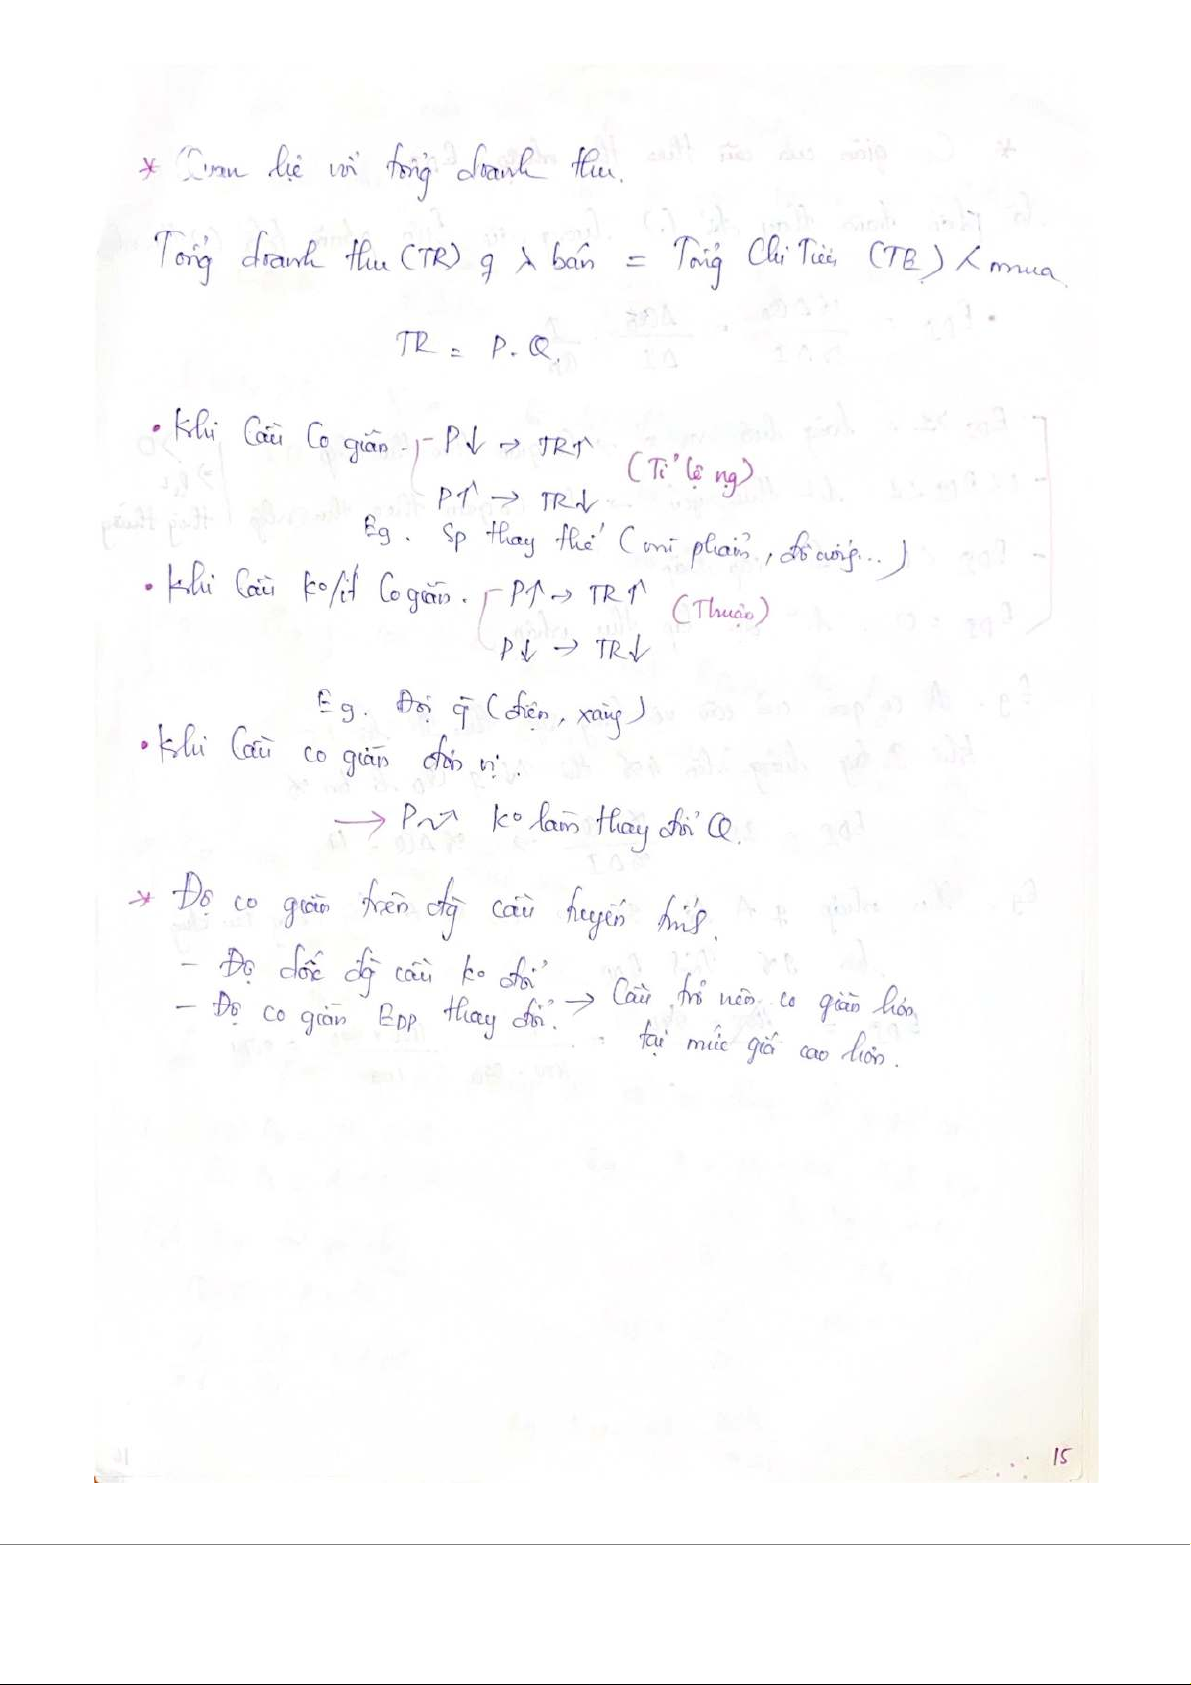 * Quan hệ với tổng doanh thu.
Tổng doanh thu (TR) bán = Tổng Chi Tiêu (TE) mua
TR = P. Q.
• Khi Cầu Co giãn. P↓ → TR↑
(Tỉ lệ ng)
P↑ → TR↓
Eg. Sp thay thế (mĩ phẩm, đồ uống...)
• Khi Cầu ko/ít Co giãn. P↑ → TR↑
(Thuận)
P↓ → TR↓
Eg. (điện, xăng)
• Khi Cầu co giãn đơn vị.
→ P ko làm thay đổi Q.
* Độ co giãn trên đg cầu tuyến tính.
- Độ dốc đg cầu ko đổi
- Độ co giãn EDP thay đổi. → Cầu trở nên co giãn hơn
tại mức giá cao hơn.
15